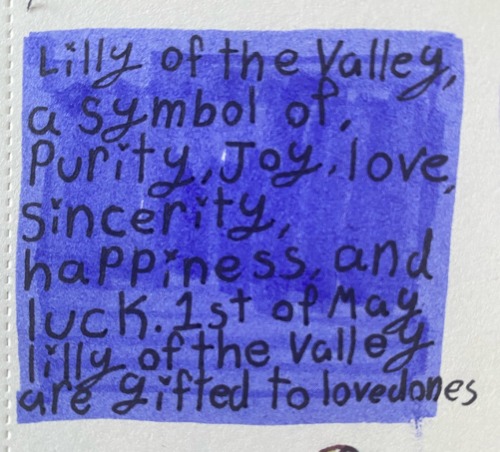 Lilly of the Valley,
a symbol of,
Purity, Joy, love,
Sincerity,
happiness, and
luck. 1st of May
lilly of the Valley
are gifted to lovedones